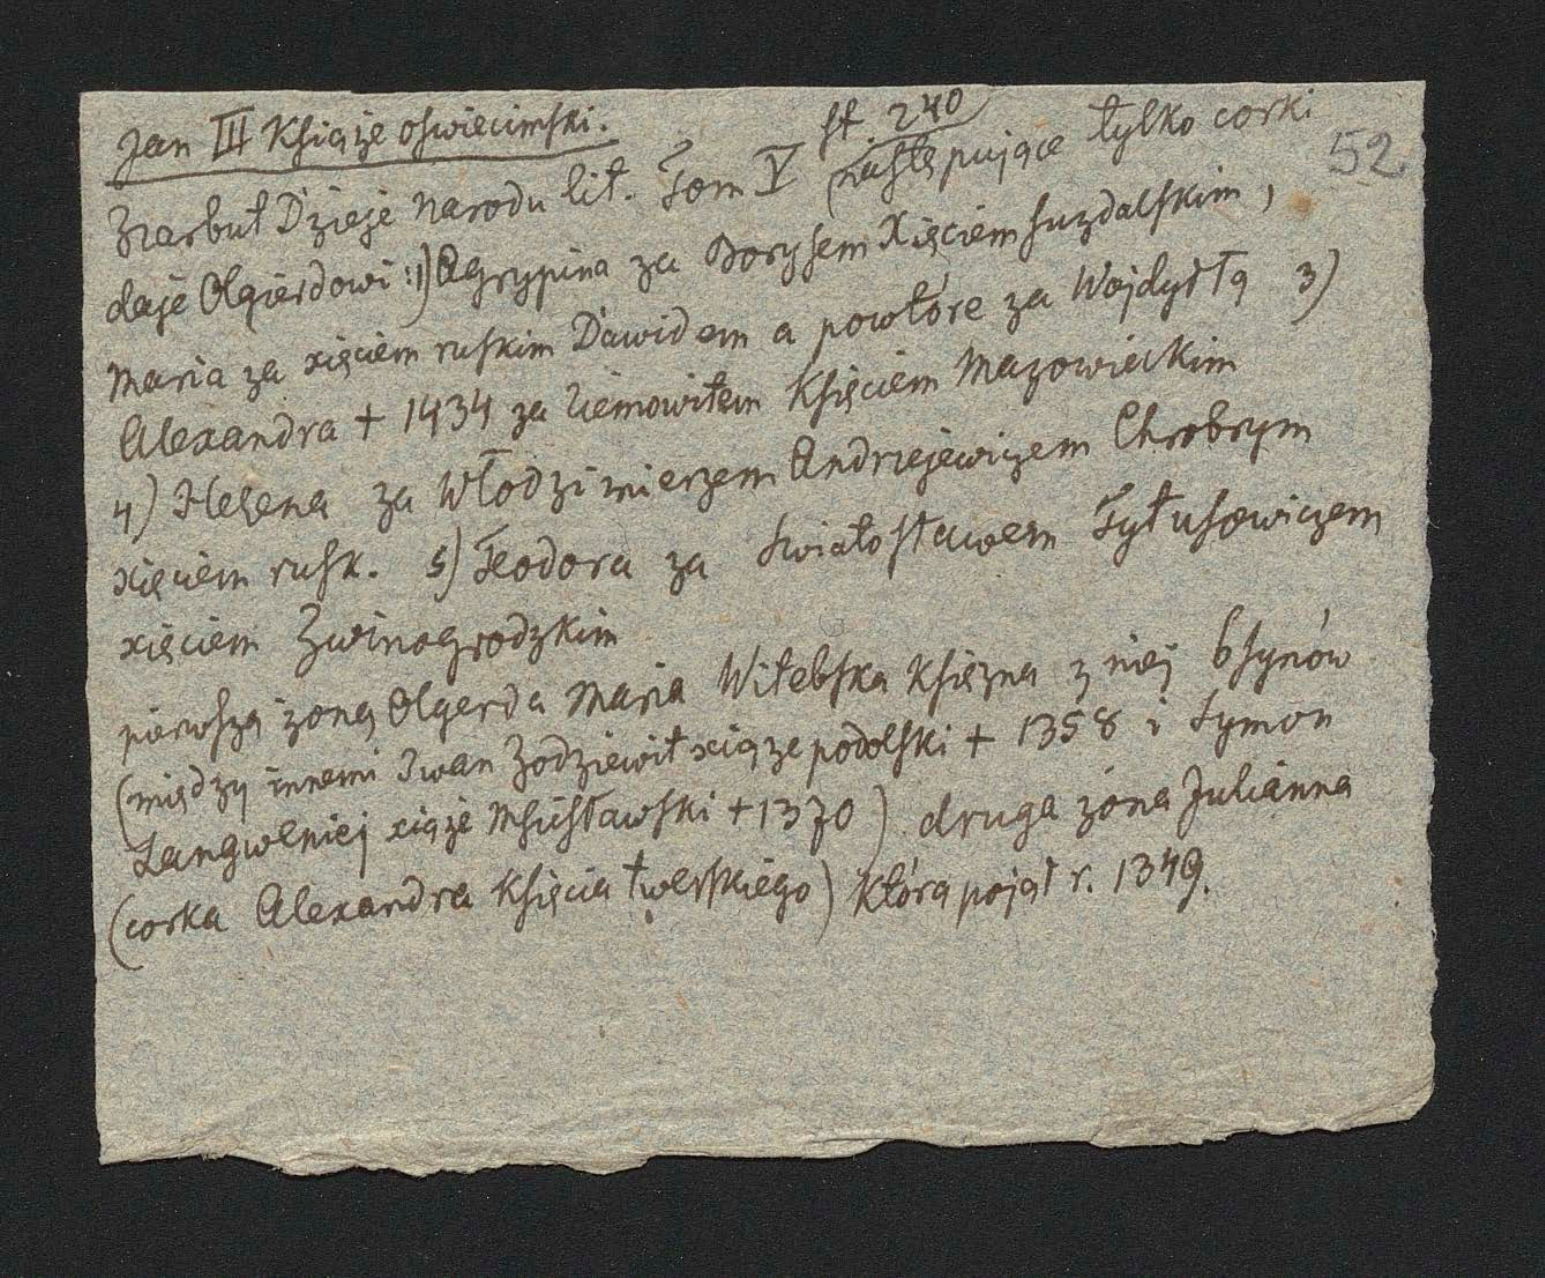 Jan III Książe oswiecimski.
st. 240
52
Narbut Dzieje narodu lit. Tom V następujące tylko corki
daje Olgierdowi: 1) Agrypina za Borysem Xięciem suzdalskim,
Maria za xięciem ruskim Dawidem a powtóre za Wojdyłłą 3)
Alexandra + 1434 za Ziemowitem Księciem Mazowieckim
4) Helena za Włodzimierzem Andrzejewiczem Chrobrym
xięciem rusk. 5) Teodora za Swiatosławem Tytusowiczem
xięciem Zwinogrodzkim
pierwszą żoną Olgerda Maria Witebska Księzna z niej 6 synów
(między innemi Iwan Zodziewit xiąze podolski + 1358 i Symon
Langweniej xiąże Mscisławski + 1370) druga żona Julianna
(corka Alexandra Księcia twerskiego) którą pojął r. 1349.